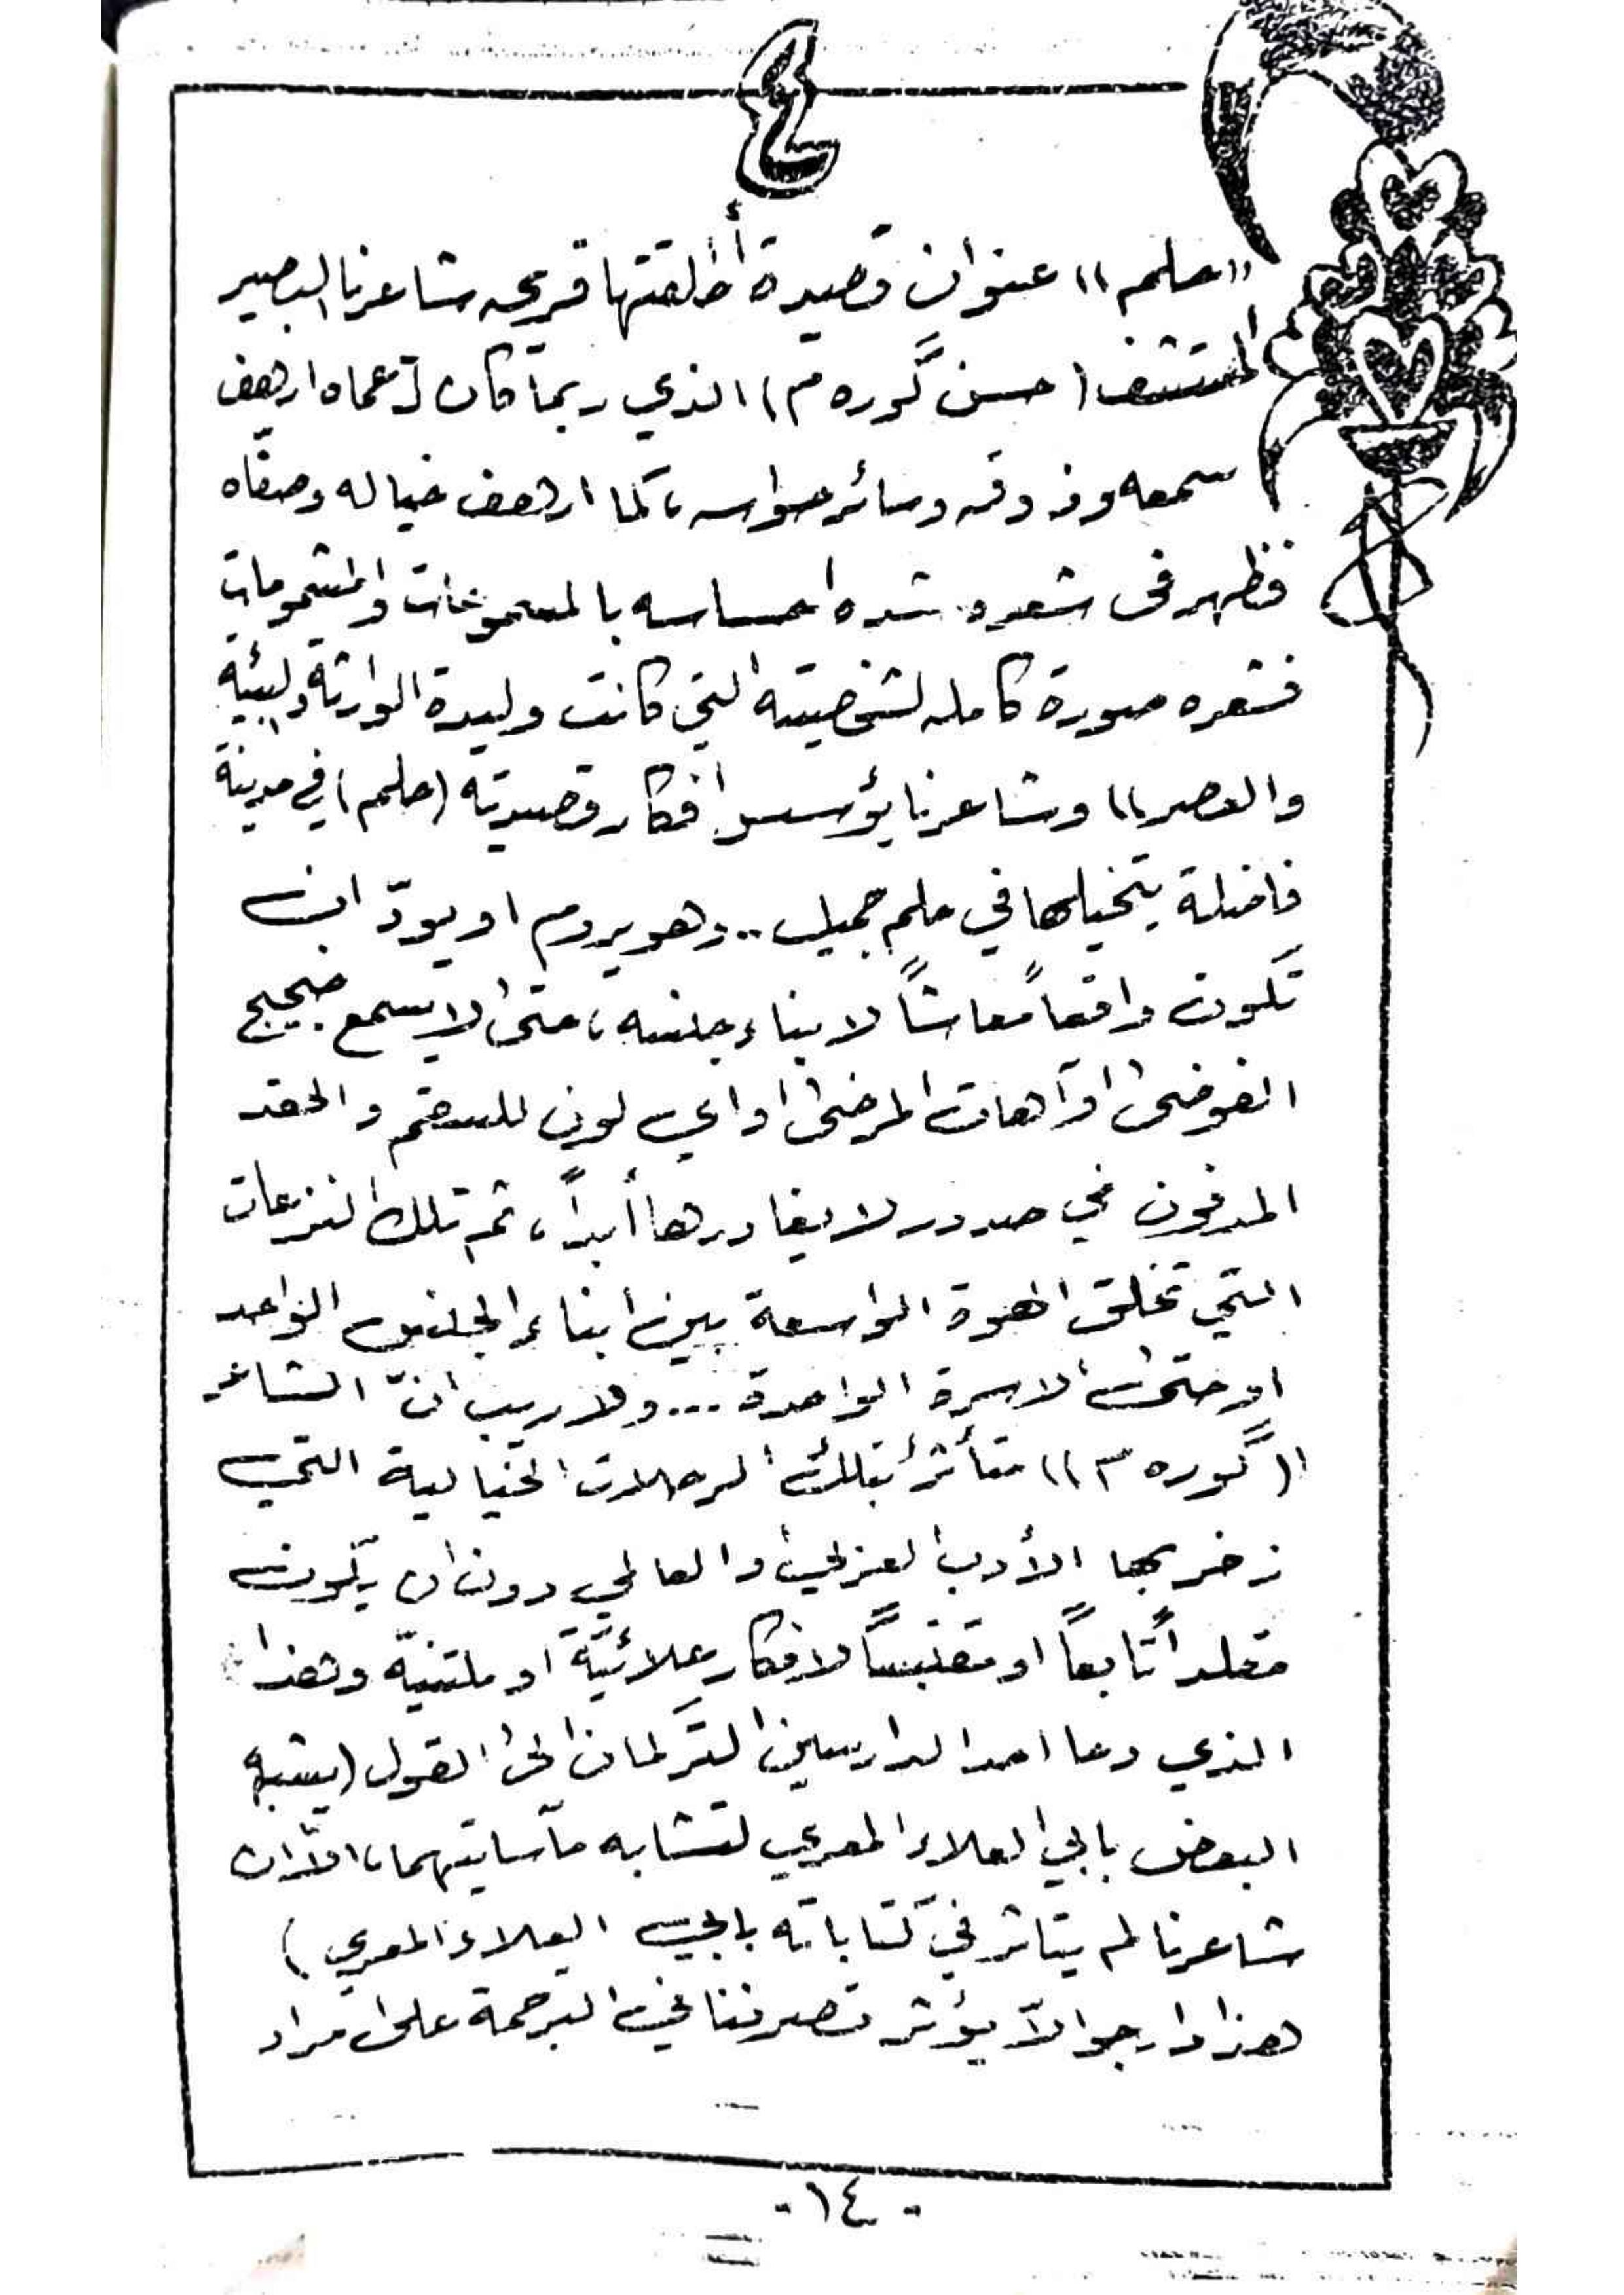 ٤
«حلم» عنوان قصيدة أطلقتها قريحه شاعرنا البصير
المتشف (حسن گوره م) الذي ربما كان لعماه ارهف
سمعه وذوقه وسائر حواسه، كما ارهف خياله وصفّاه
فظهر فى شعره شده احساسه بالمسموعات والمشمومات
فشعره صورة كامله لشخصيته التي كانت وليدة الوراثة والبيئة
والعصر» وشاعرنا يؤسس أفكار قصيدته (حلم) في مدينة
فاضلة يتخيلها في حلم جميل.. وهو يروم او يودّ ان
تكون واقعاً معاشاً لابناء جلسه، حتى لا يسمع ضجيج
الفوضى او آهات المرضى او اي لون للسقم والحقد
المدفون في صدور لا يغادرها أبداً، ثم تلك النزعات
التي تخلق الهوة الواسعة بين ابناء الجنس الواحد
او حتى الاسرة الواحدة... ولا ريب انّ الشاعر
(گوره م)) متأثر بتلك الرحلات الخيالية التي
زخر بها الأدب العربي والعالمي دون ان يكون
مقلداً تابعاً او مقتبساً لافكار علائيّة او ملتنيّة وهذا
الذي دعا احد الدارسين التركمان الى القول (يشبه
البعض بابي العلاء المعري لتشابه مآسايتهما، الاّ ان
شاعرنا لم يتاثر في كتاباته بابي العلاء المعري)
هذا وارجو الاّ يؤثر تصرفنا في الترجمة على مراد
- ١٤ -